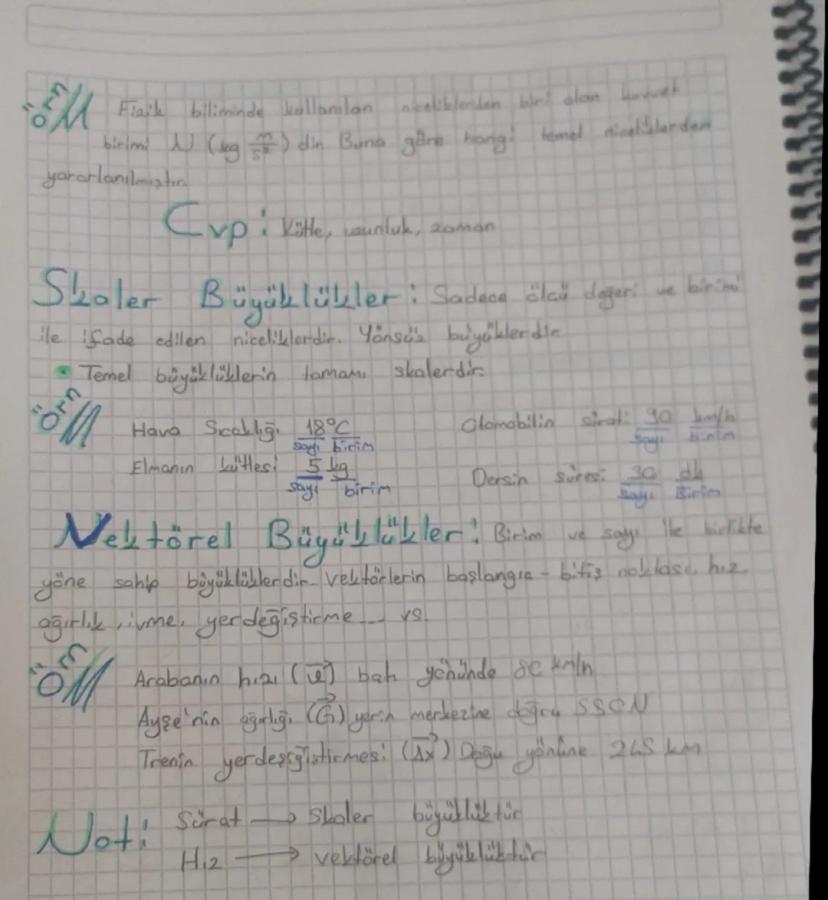 Örn Fizik biliminde kullanılan niceliklerden biri olan kuvvet
birimi N (kg m/s²) dir. Buna göre hangi temel niceliklerden
yararlanılmıştır.
Cvp: Kütle, uzunluk, zaman
Skaler Büyüklükler: Sadece ölçü değeri ve birimi
ile ifade edilen niceliklerdir. Yönsüz büyüklerdir.
• Temel büyüklüklerin tamamı skalerdir.
Örn Hava Sıcaklığı 18°C Otomobilin sürati: 90 km/h
sayı birim sayı birim
Elmanın kütlesi 5 kg Dersin süresi: 30 dk
sayı birim sayı birim
Vektörel Büyüklükler: Birim ve sayı ile birlikte
yöne sahip büyüklüklerdir. vektörlerin başlangıç - bitiş noktası. hız
ağırlık, ivme, yerdeğiştirme... vs.
Örn Arabanın hızı batı yönünde 80 km/h
Ayşe'nin ağırlığı (G⃗) yerin merkezine doğru 550N
Trenin (Δx⃗) Doğu yönüne 265 km
Not: Sürat → Skaler büyüklüktür
Hız → vektörel büyüklüktür